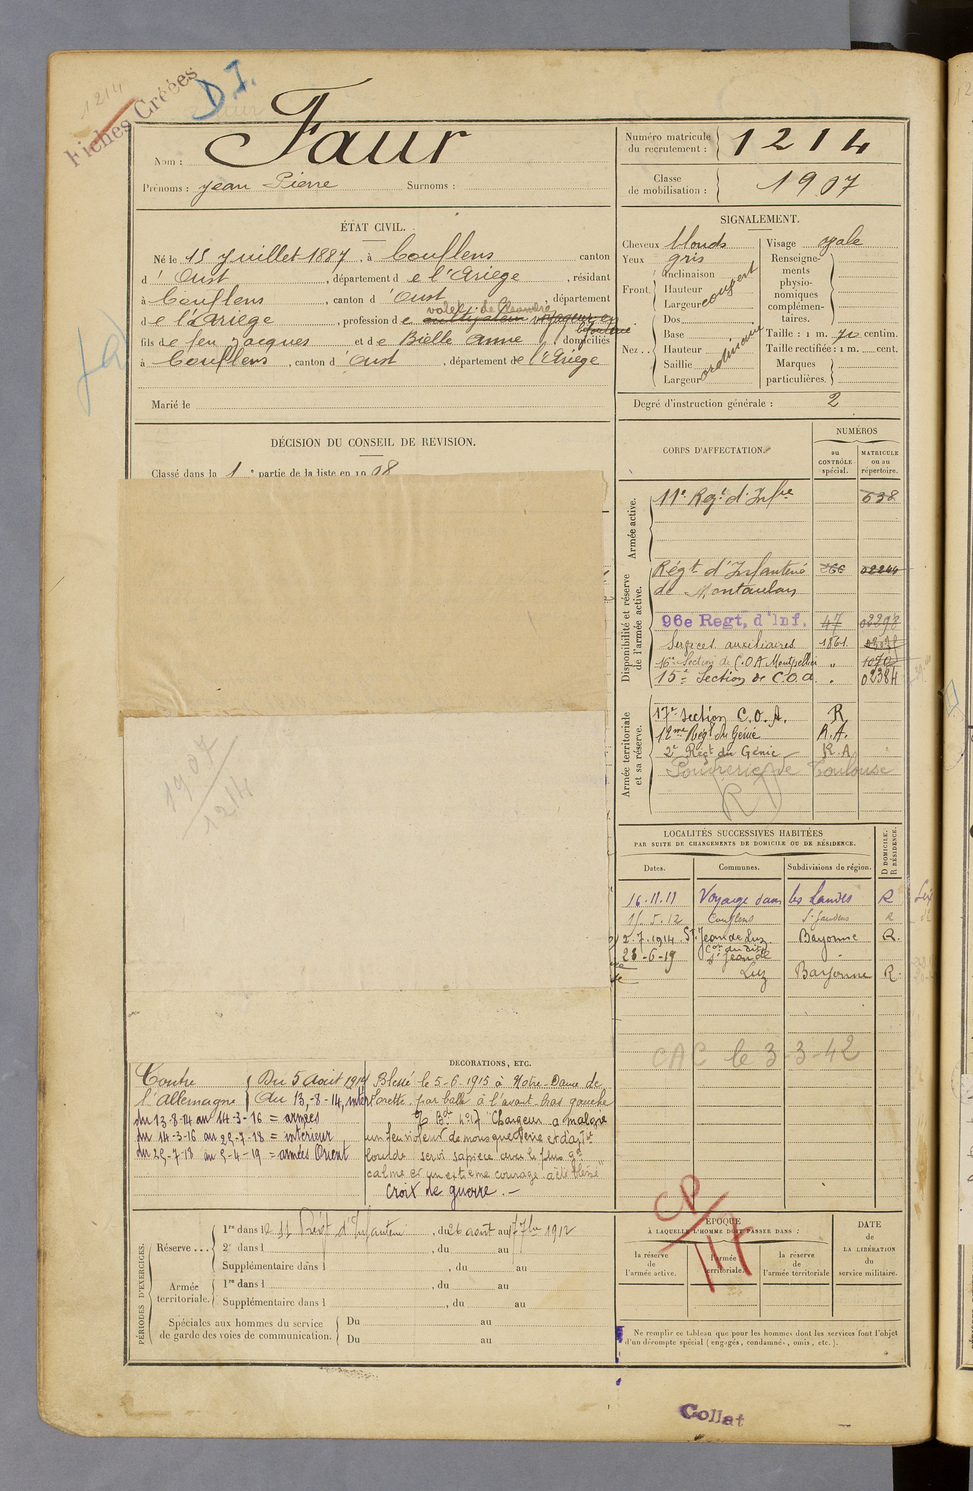 1214
Fiches Créées
D.I.
Nom : Faur
Prénoms : Jean Pierre Surnoms :
Numéro matricule du recrutement : 1214
Classe de mobilisation : 1907
ÉTAT CIVIL.
Né le 15 Juillet 1887, à Couflens, canton
d'Oust, département de l'Ariège, résidant
à Couflens, canton d'Oust, département
valet de chambre
de l'Ariège, profession de
fils de feu Jacques et de Bielle Anne domiciliés
à Couflens, canton d'Oust, département de l'Ariège
Marié le
DÉCISION DU CONSEIL DE REVISION.
Classé dans la 1e partie de la liste en 1908
1907
1214
SIGNALEMENT.
Cheveux blonds
Yeux gris
Front
Inclinaison
Hauteur
Largeur
Nez
Dos
Base
Hauteur
Saillie
Largeur
ordinaire
Visage ovale
Renseignements physionomiques complémentaires.
Taille : 1 m. 70 centim.
Taille rectifiée : 1 m. cent.
Marques particulières.
Degré d'instruction générale : 2
CORPS D'AFFECTATION.
NUMÉROS
au CONTRÔLE spécial.
MATRICULE ou au répertoire.
Armée active.
11e Regt d'Infie 698
Disponibilité et réserve de l'armée active.
Régt d'Infanterie
de Montauban
96e Regt, d'Inf. 47 02298
Services auxiliaires 1861
16e Section de C.O.A Montpellier " 1070
15e Section de C.O.A. " 02384
Armée territoriale et sa réserve.
17e Section C.O.A. R
12me Régt du Génie R.A.
2e Régt du Génie R.A
Poudrerie de Toulouse
LOCALITÉS SUCCESSIVES HABITÉES
PAR SUITE DE CHANGEMENTS DE DOMICILE OU DE RÉSIDENCE.
Dates. Communes. Subdivisions de région. D DOMICILE. R RÉSIDENCE.
16.11.11 Voyage dans les Landes R
11.5.12 Couflens St Gaudens R
2.7.1914 St Jean de Luz Bayonne R.
28-6-19 St Jean de
Luz Bayonne R.
CAC le 3-3-42
DÉCORATIONS, ETC.
Contre l'Allemagne
Du 5 Août 1914
au 13-8-14, intér
du 13-8-14 au 14-3-16 = armées
du 14-3-16 au 25-7-18 = intérieur
du 25-7-18 au 5-4-19 = armées Orient
Blessé le 5-6-1915 à Notre-Dame de
Lorette par balle à l'avant-bras gauche
"Chargeur a malgré
un feu violent de mousqueterie et d'artie
lourde servi sa pièce avec le plus gd
calme et un extrême courage a été blessé"
Croix de guerre. -
PÉRIODES D'EXERCICES.
Réserve
1re dans le 11 Régt d'Infanterie, du 26 août au 7 7bre 1912
2e dans l , du au
Supplémentaire dans l , du au
Armée territoriale.
1re dans l , du au
Supplémentaire dans l , du au
Spéciales aux hommes du service de garde des voies de communication.
Du au
Du au
CP
117
ÉPOQUE
À LAQUELLE L'HOMME DOIT PASSER DANS :
la réserve de l'armée active.
l'armée territoriale.
la réserve de l'armée territoriale
DATE DE LA LIBÉRATION du service militaire.
Ne remplir ce tableau que pour les hommes dont les services font l'objet
d'un décompte spécial (engagés, condamnés, omis, etc.).
Collat